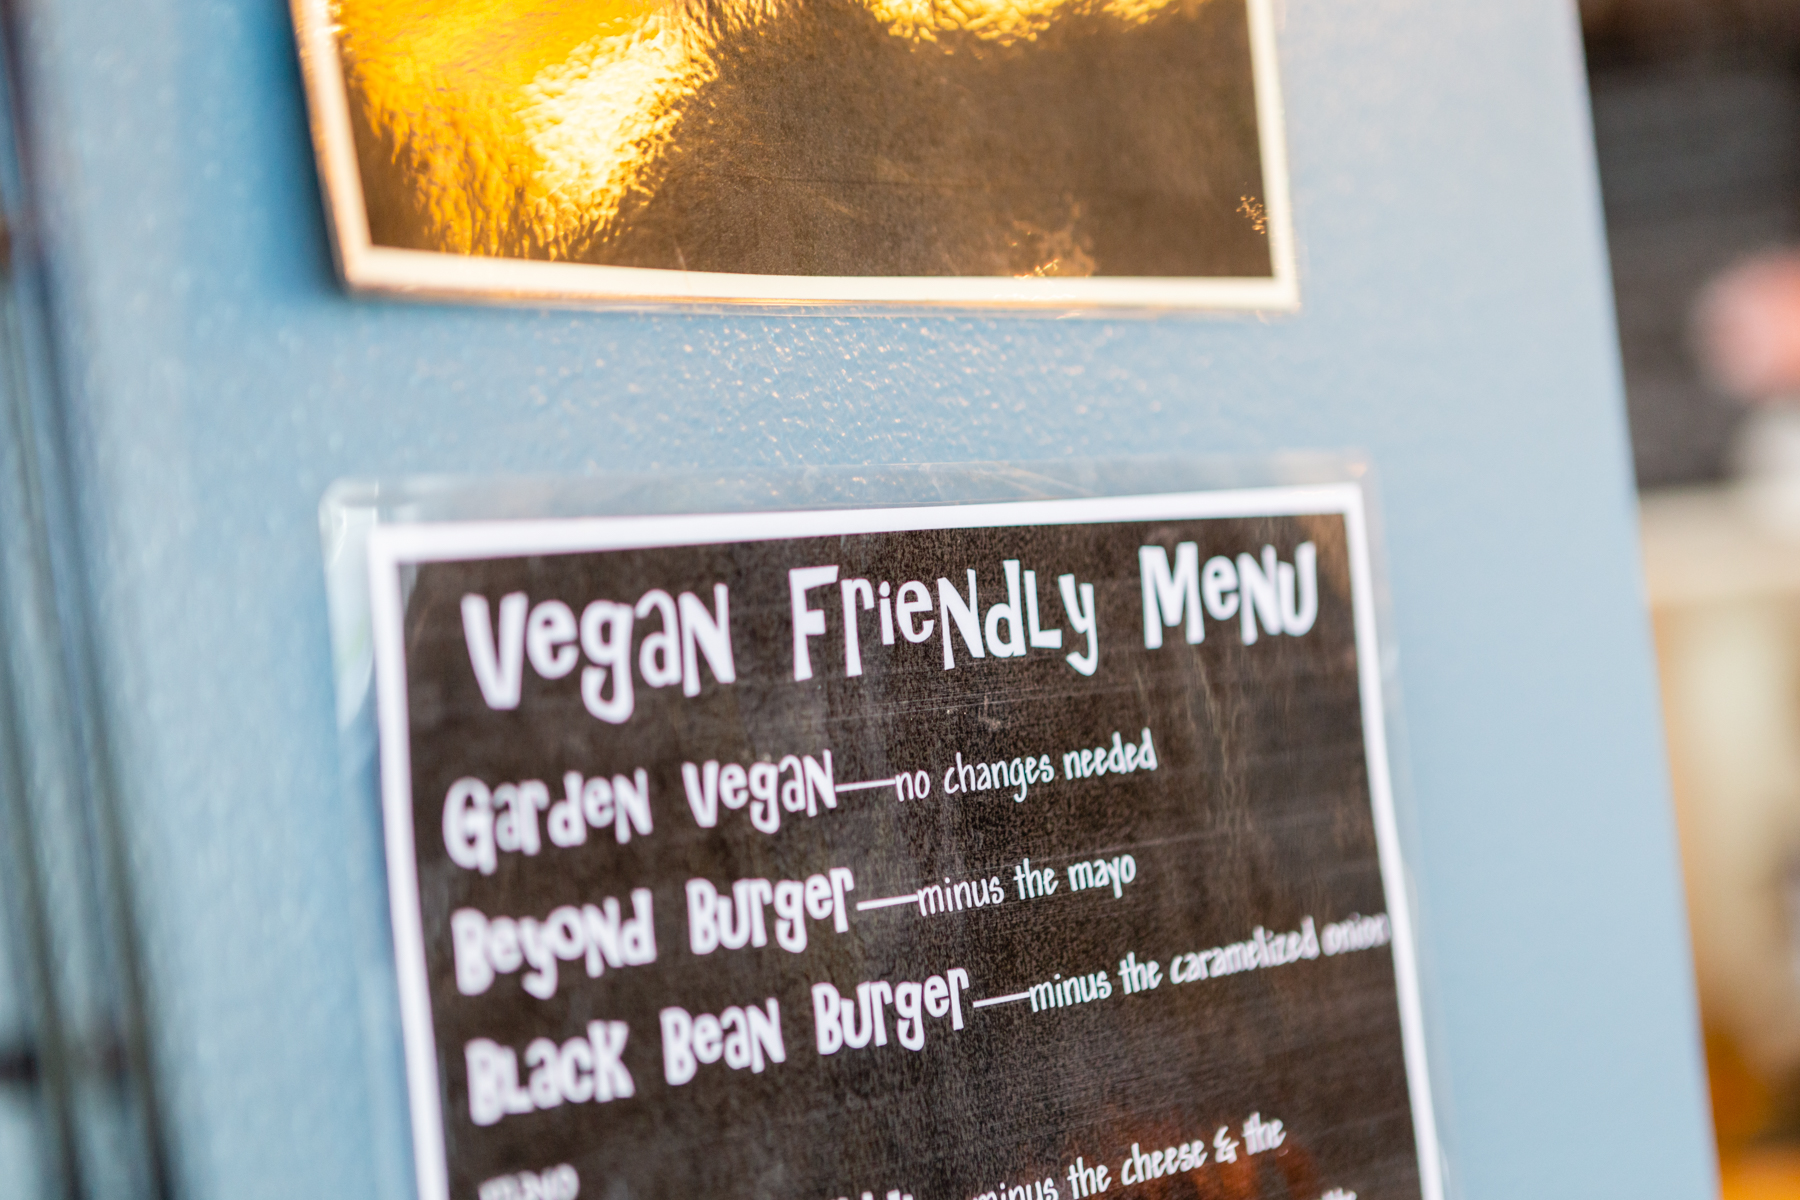 Vegan Friendly Menu
Garden Vegan—no changes needed
Beyond Burger—minus the mayo
Black Bean Burger—minus the caramelized onion
mayo
minus the cheese & the